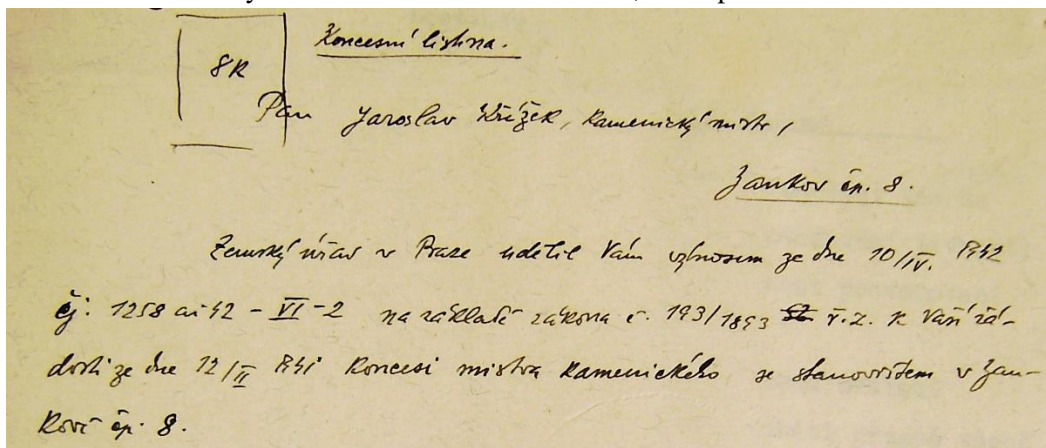 Koncesní listina.
8K
Pan Jaroslav Křížek, kamenický mistr,
Jankov čp. 8.
Zemský úřad v Praze udělil Vám výnosem ze dne 10/IV. 1942
čj: 1258 ai 42 - VI - 2 na základě zákona č. 193/1893 ř.z. k Vaší žá-
dosti ze dne 12/II 1941 koncesi mistra kamenického se stanovištěm v Jan-
kově čp. 8.